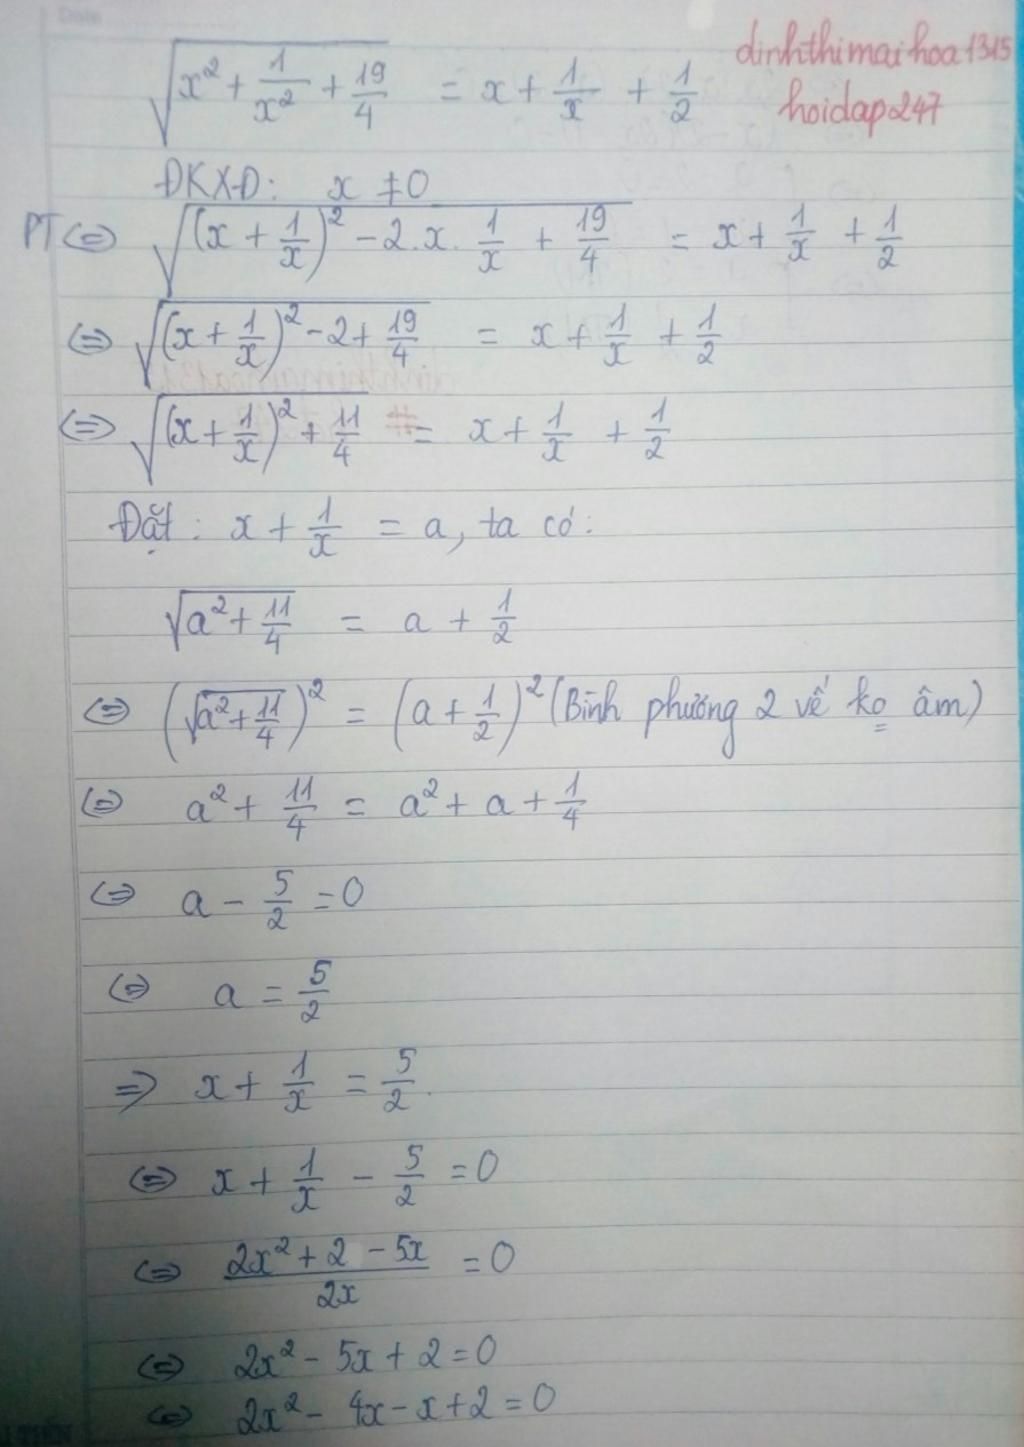 Date
dinhthimaihoa1315
hoidap247
√(x² + 1/x² + 19/4) = x + 1/x + 1/2
ĐKXĐ: x ≠ 0
PT ⇔ √((x + 1/x)² - 2.x. 1/x + 19/4) = x + 1/x + 1/2
⇔ √((x + 1/x)² - 2 + 19/4) = x + 1/x + 1/2
⇔ √((x + 1/x)² + 11/4) = x + 1/x + 1/2
Đặt: x + 1/x = a, ta có:
√(a² + 11/4) = a + 1/2
⇔ (√(a² + 11/4))² = (a + 1/2)² (Bình phương 2 vế ko âm)
⇔ a² + 11/4 = a² + a + 1/4
⇔ a - 5/2 = 0
⇔ a = 5/2
⇒ x + 1/x = 5/2.
⇔ x + 1/x - 5/2 = 0
⇔ (2x² + 2 - 5x)/2x = 0
⇔ 2x² - 5x + 2 = 0
⇔ 2x² - 4x - x + 2 = 0